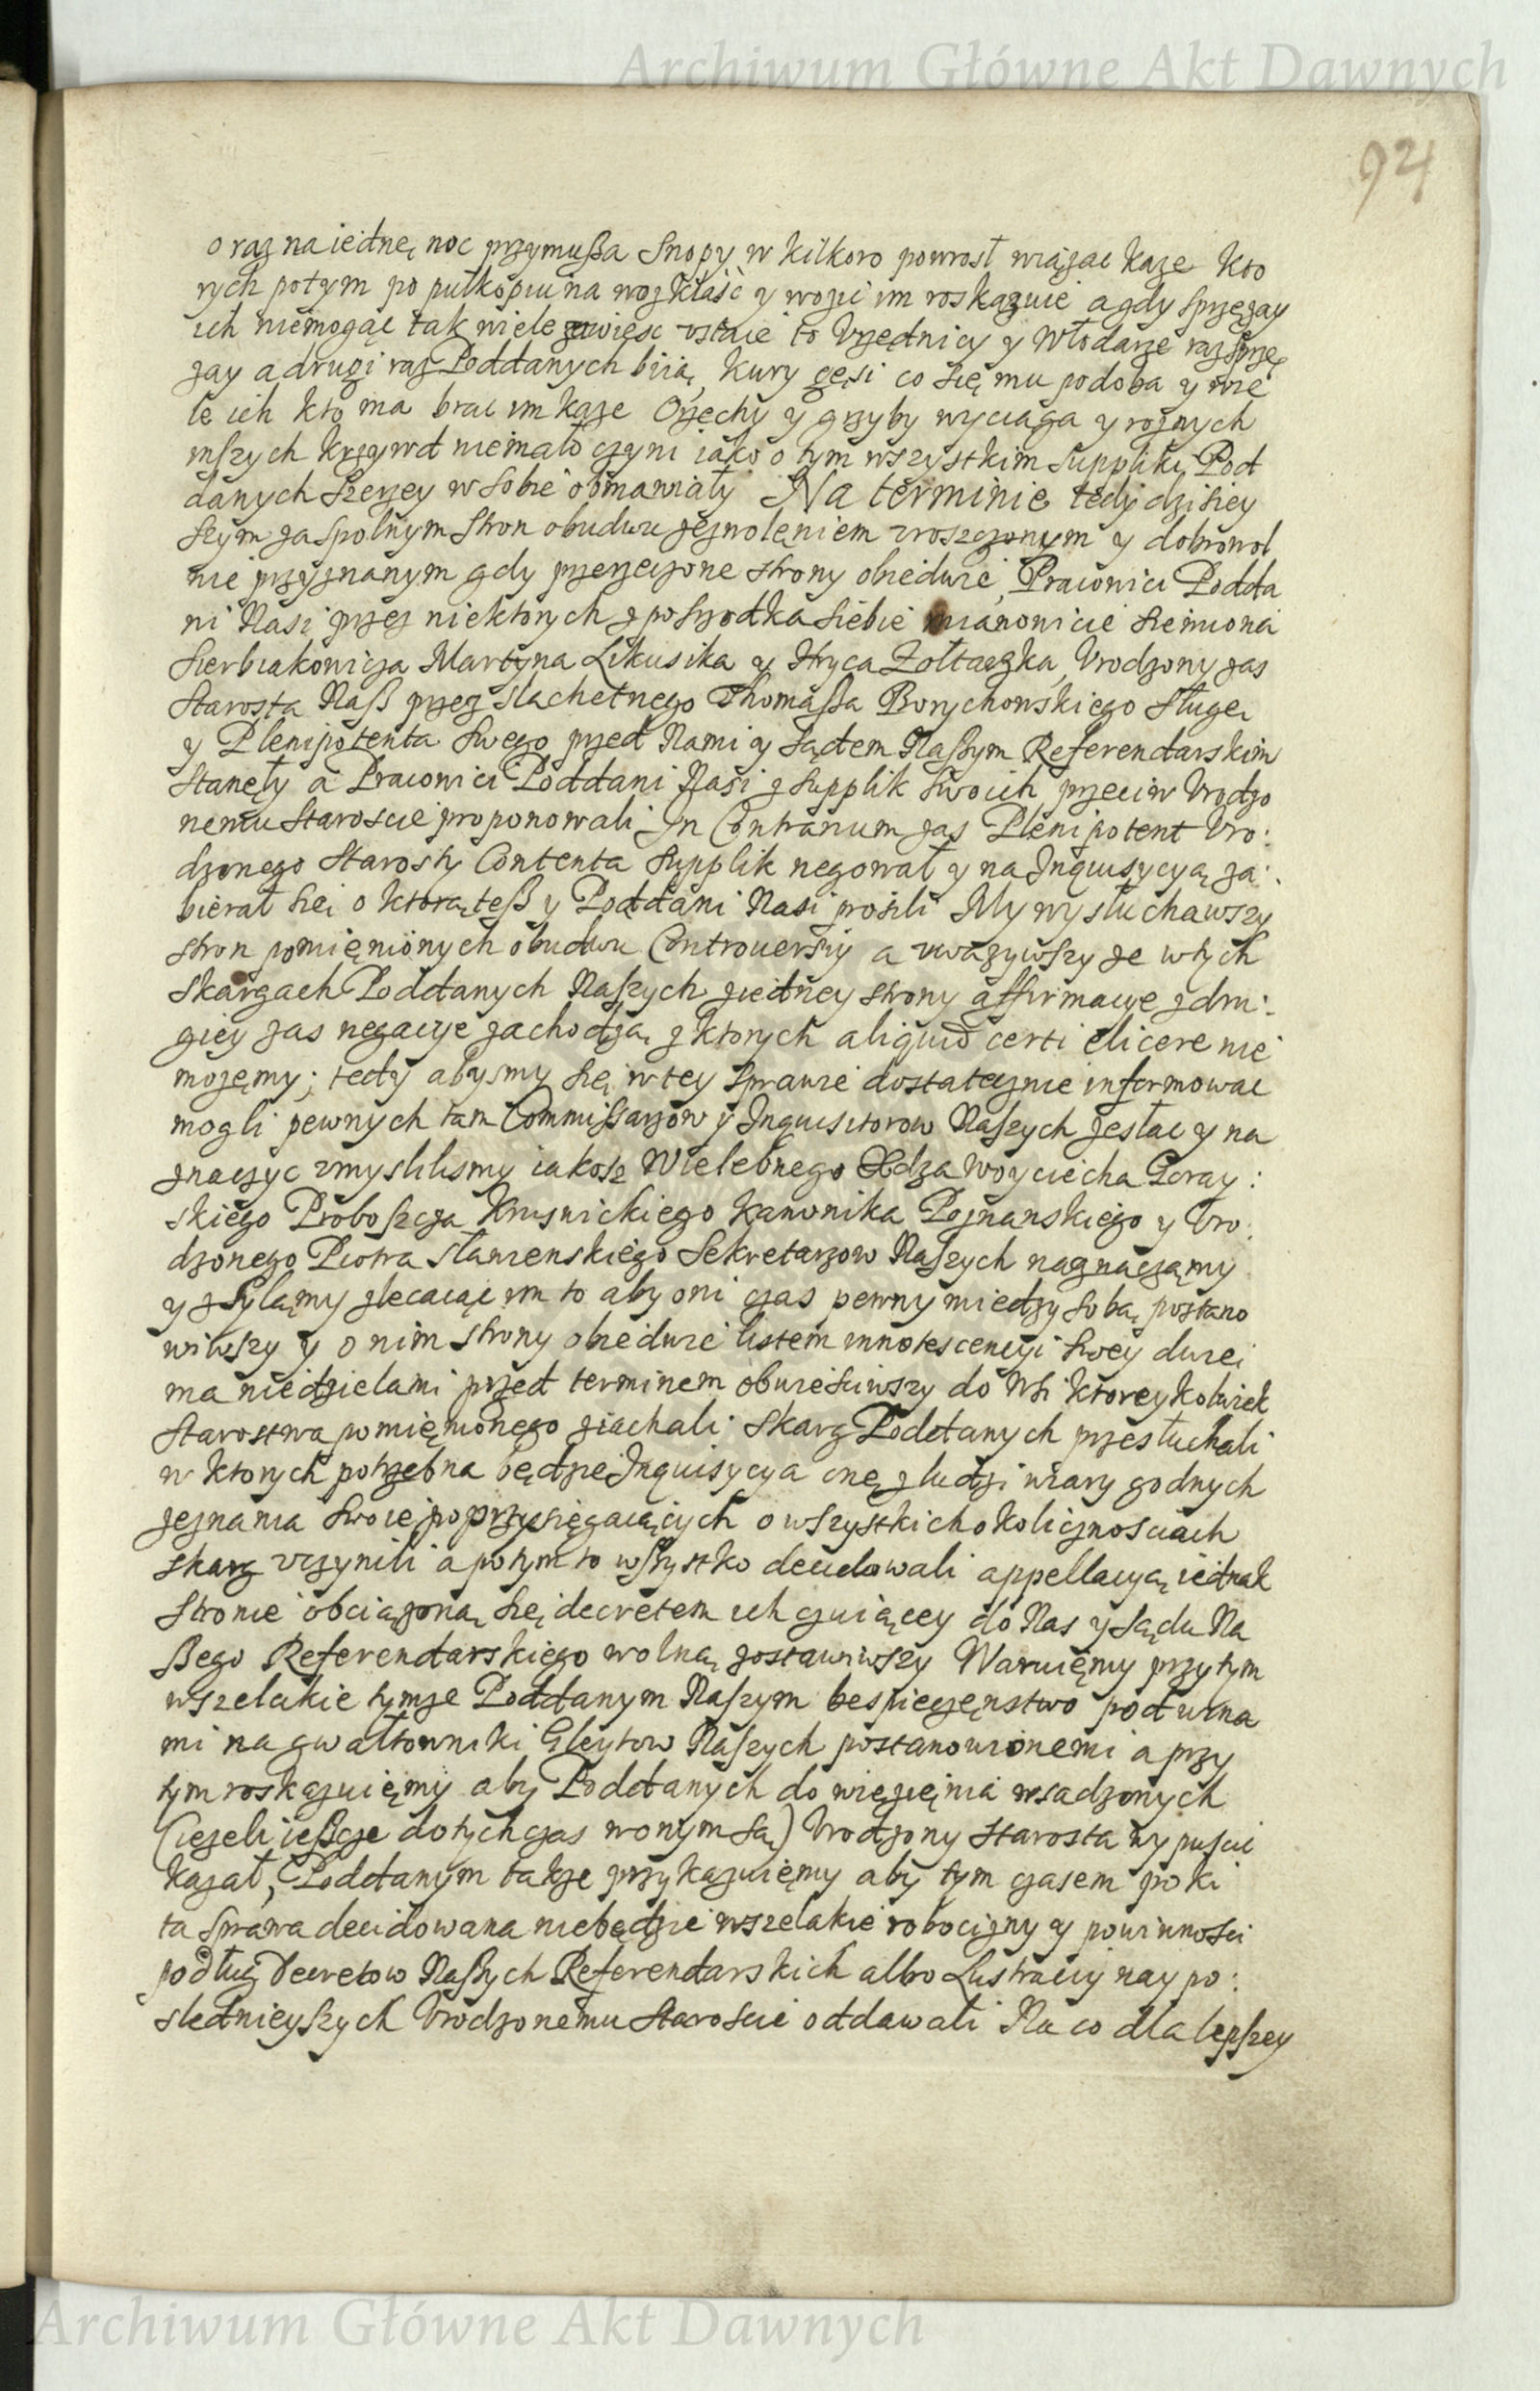 Archiwum Główne Akt Dawnych
94
o raz na iednę noc przymußa Snopy w kilkoro powrosł wiązac kaze kto
rych potym po pułkopiu na woz kłaść y wozic im roskazuie a gdy sprzęzay
ich niemogąc tak wiele zawiesc ustaie to Vrzędnicy y Włodarze raz sprzę
zay a drugi raz Poddanych biią, kury gęsi co się mu podoba y wie
le ich kto ma brac im kaze Orzechy y grzyby wyciąga y roznych
inszych krzywd niemało czyni iako o tym wszystkim Suppliki Pod
danych Szerzey w sobie obmawiały Na terminie tedy dzisiey
szym za spolnym stron obudwu zezwoleniem uroszczonym y dobrowol
nie przyznanym gdy przerzeczone strony obiedwie, Pracowici Podda
ni Nasi przez niektorych z posrzodka siebie mianowicie Siemiona
Sierbiakowicza Martyna Likusika y Hryca Zołtaczka, Vrodzony zas
Starosta Naß przez Slachetnego Thomaßa Borychowskiego Sługę
y Plenipotenta Swego przed Nami y Sądem Naßym Referendarskim
Stanęły a Pracowici Poddani Nasi z Supplik Swoich przeciw Vrodzo
nemu Staroscie proponowali In Contrarium zas Plenipotent Vro:
dzonego Starosty Contenta Supplik negował y na Inquisycyą za:
bierał się o ktorą teß y Poddani Nasi prosili My wysłuchawszy
stron pomięnionych obudwu Controversiy a uwazywszy ze w tych
Skargach Poddanych Naszych z iedney strony affirmacye z dru:
giey zas negacye zachodzą z ktorych aliquid certi elicere nie
mozęmy; tedy abysmy się w tey Sprawie dostatecznie informowac
mogli pewnych tam Commissarzow y Inquisitorow Naszych zesłac y na
znaczyc umyslilismy iakosz Wielebnego Xdza Woyciecha Goray:
skiego Proboszcza Kruswickiego Kanonika Poznanskiego y Vro:
dzonego Piotra Sławenskiego Sekretarzow Naszych naznaczamy
y zsylamy zlecaiąc im to aby oni czas pewny miedzy sobą postano
wiwszy y o nim strony obiedwie listem innotescencyi Swey dwie
ma niedzielami przed terminem obwieściwszy do Wsi ktoreykolwiek
Starostwa pomięnionego ziachali Skarg Poddanych przesłuchali
w ktorych potrzebna będzie Inquisycya onę z ludzi wiary godnych
zeznania Swoie poprzysięgaiących o wszystkich okolicznosciach
skarg uczynili a potym to wszystko decidowali appellacyą iednak
Stronie obciązoną się decretem ich czuiącey do Nas y Sądu Na
ßego Referendarskiego wolną zostawiwszy Waruięmy przy tym
wszelakie tymze Poddanym Naszym bespieczęnstwo pod wina
mi na gwałtowniki Gleytow Naszych postanowionemi a przy
tym roskazuięmy aby Poddanych do więzięnia wsadzonych
(iezeli ießcze dotychczas w onym są) Vrodzony Starosta wypuscic
kazał, Poddanym takze przykazuięmy aby tym czasem poki
ta Sprawa decidowana niebędzie wszelakie robocizny y powinnosci
podług Decretow Naßych Referendarskich albo Lustraciy naypo:
slednieyszych Vrodzonemu Staroscie oddawali Na co dla lepszey
Archiwum Główne Akt Dawnych